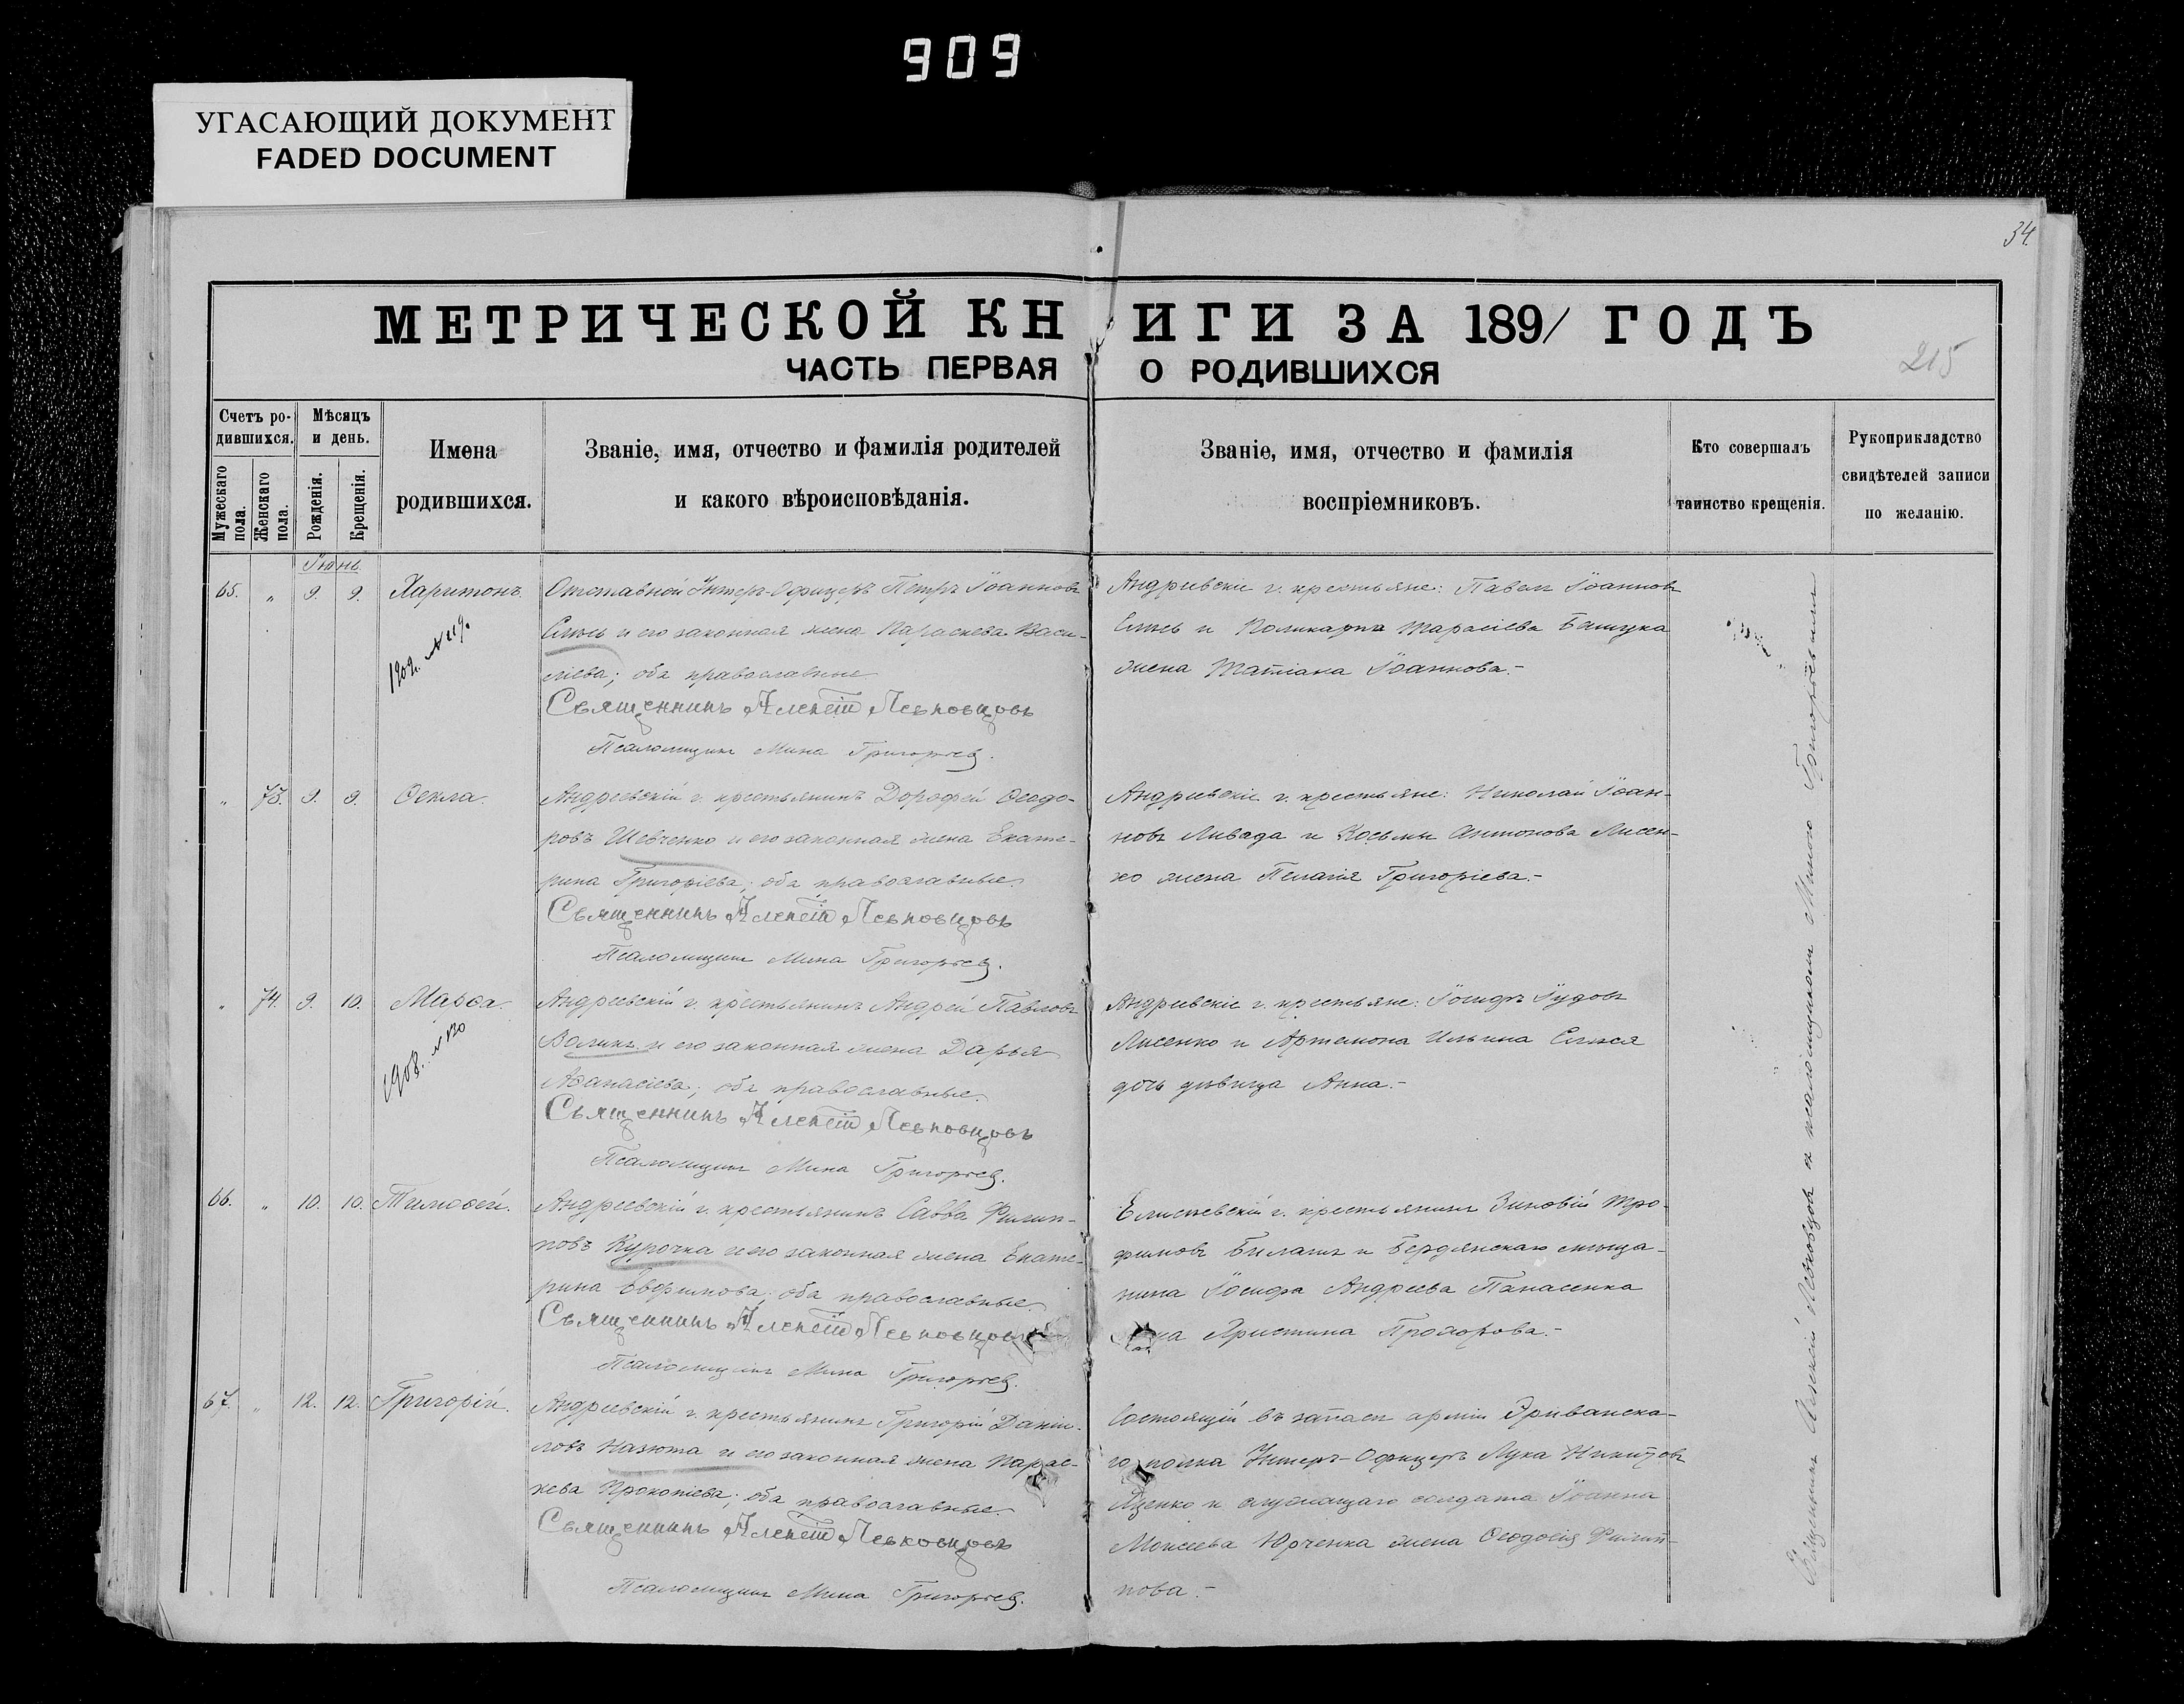 909
УГАСАЮЩИЙ ДОКУМЕНТ
FADED DOCUMENT
34.
МЕТРИЧЕСКОЙ КНИГИ ЗА 1891 ГОДЪ
ЧАСТЬ ПЕРВАЯ О РОДИВШИХСЯ
215
Счетъ ро-
дившихся.
Мужескаго
пола.
Женскаго
пола.
Мѣсяцъ
и день.
Рожденія.
Крещенія.
Имена
родившихся.
Званіе, имя, отчество и фамилія родителей
и какого вѣроисповѣданія.
Званіе, имя, отчество и фамилія
воспріемниковъ.
Кто совершалъ
таинство крещенія.
Рукоприкладство
свидѣтелей записи
по желанію.
Іюнь
65. „ 9. 9. Харитонъ.
Отставной Унтеръ-Офицеръ Петръ Іоанновъ
и его законная жена Параскева Васи-
ліева; оба православные
Священникъ Алексій Левковцовъ
Псаломщикъ Мина Григорьев.
Андреевскіе г. крестьяне: Павелъ Іоанновъ
и Поликарпа Тарасіева
жена Татіана Іоаннова.-
1909. № 119.
„ 73. 9. 9. Ѳекла.
Андреевскій г. крестьянинъ Дорофей Ѳеодо-
ровъ Шевченко и его законная жена Екате-
рина Григоріева; оба православные.
Священникъ Алексій Левковцовъ
Псаломщикъ Мина Григорьев.
Андреевскіе г. крестьяне: Николай Іоан-
новъ Ливада и Косьмы Антонова Лисен-
ко жена Пелагія Григоріева.-
„ 74. 9. 10. Марѳа.
Андреевскій г. крестьянинъ Андрей Павловъ
Воликъ и его законная жена Дарья
Аѳанасіева; оба православные.
Священникъ Алексій Левковцовъ
Псаломщикъ Мина Григорьев.
Андреевскіе г. крестьяне: Іосифъ Іудовъ
Лисенко и Артемона Ильина
дочь дѣвица Анна.-
1908.
66. „ 10. 10. Тимоѳей.
Андреевскій г. крестьянинъ Савва Филип-
повъ Курочка и его законная жена Екате-
рина Евфимова; оба православные.
Священникъ Алексій Левковцовъ
Псаломщикъ Мина Григорьев.
Елисеевскій г. крестьянинъ Зиновій Тро-
фимовъ Билашъ и Бердянскаго мѣща-
нина Іосифа Андреева Панасенка
Христина Прохорова.-
67. „ 12. 12. Григорій.
Андреевскій г. крестьянинъ Григорій Даніи-
ловъ Назюта и его законная жена Парас-
кева Прокопіева; оба православные.
Священникъ Алексій Левковцовъ
Псаломщикъ Мина Григорьев.
Состоящій въ запасѣ арміи Эриванска-
го полка Унтеръ-Офицеръ Лука Никитовъ
Яценко и служащаго солдата Іоанна
Моисеева Юрченка жена Ѳеодосія Филип-
пова.-
Священникъ Алексій Левковцовъ съ псаломщикомъ Миною Григорьевымъ